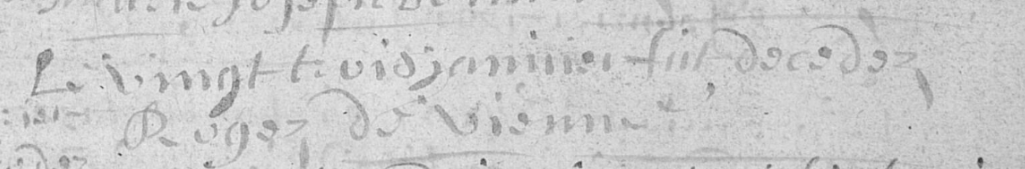 Le vingt trois janvier fut decedez
Rogez de Vienne